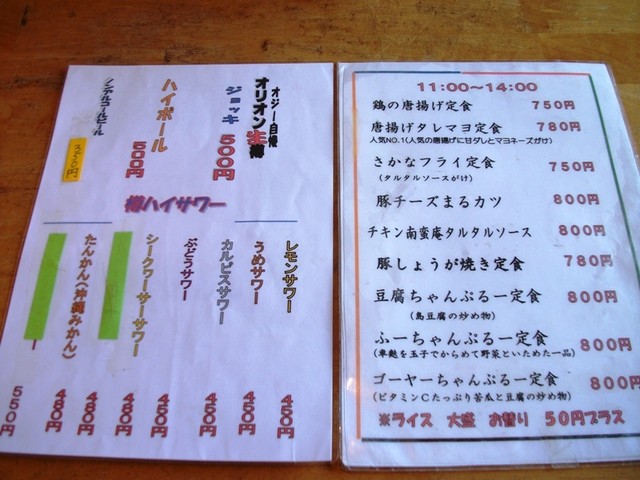 オジー自慢
オリオン生樽
ジョッキ 500円
ハイボール 500円
ノンアルコールビール 350円
樽ハイサワー
レモンサワー 450円
うめサワー 450円
カルピスサワー 450円
ぶどうサワー 450円
シークワーサーサワー 480円
480円
たんかん(沖縄みかん) 480円
550円
11:00〜14:00
鶏の唐揚げ定食 750円
唐揚げタレマヨ定食 780円
人気NO.1(人気の唐揚げに甘ダレとマヨネーズがけ)
さかなフライ定食 750円
(タルタルソースがけ)
豚チーズまるカツ 800円
チキン南蜜庵タルタルソース 800円
豚しょうが焼き定食 780円
豆腐ちゃんぷるー定食 800円
(島豆腐の炒め物)
ふーちゃんぷるー定食 800円
(車麩を玉子でからめて野菜といためた一品)
ゴーヤーちゃんぷるー定食 800円
(ビタミンCたっぷり苦瓜と豆腐の炒め物)
※ライス 大盛 お替り 50円プラス